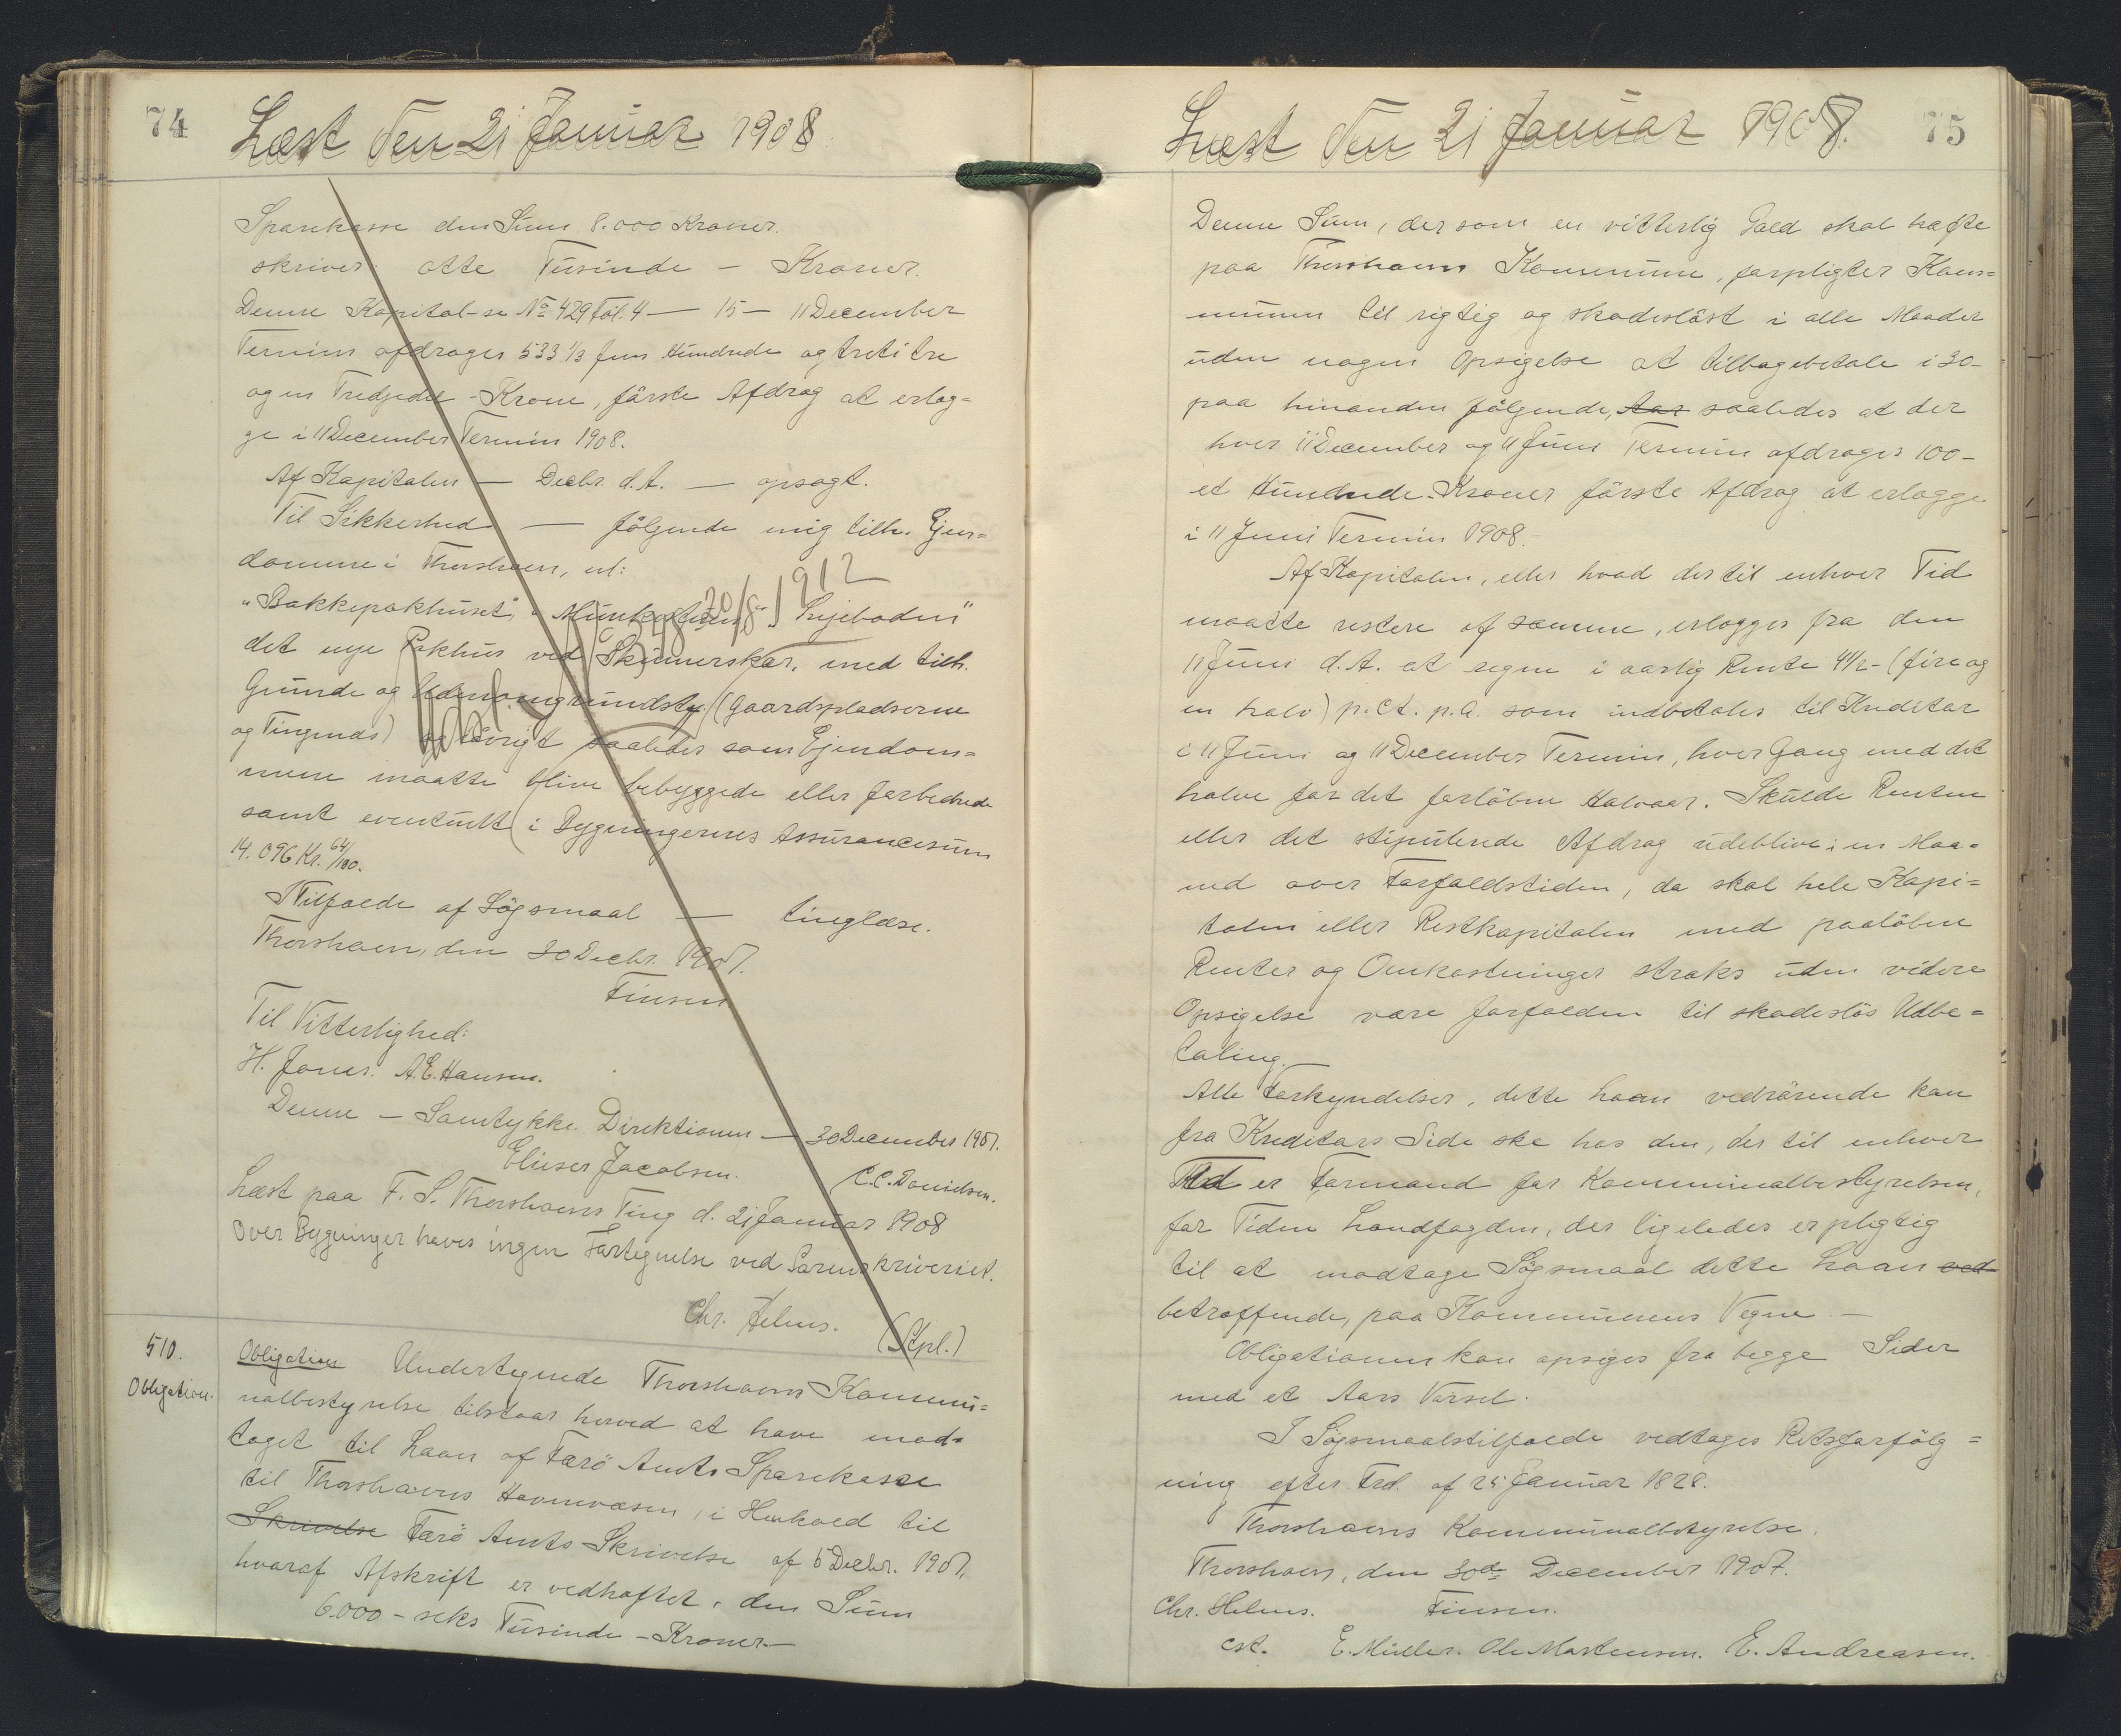 74
Læst Den 21 Januar 1908
Sparekasse den Sum 8.000 Kroner.
skriver otte Tusinde - Kroner.
Denne Kapital-se No 429 Fol. 4 — 15 — 11 December
Termin afdrages 533 1/3 fem Hundrede og treti tre
og en Tredjedel - Krone, förste Afdrag at erlæg=
ge i 11 December Termin 1908.
Af Kapitalen — Decbr. d.A. — opsagt.
Til Sikkerhed — fölgende mig tilh. Ejen=
domme i Thorshavn, nl:
"Bakkepakhuset", "Lyeboden"
det nye Pakhus ved Skinnerskær, med tilh.
Grunde og (Gaardspladserne
og Tingends) og övrigt saaledes som Ejendom=
mene maatte blive bebyggede eller forbedrede
samt eventuelt i Bygningernes Assurancesum
14.096 Kr. 64/100.
I Tilfælde af Sögsmaal — tinglæse.
Thorshavn, den 30 Decbr. 1907.
Finsen
Til Vitterlighed:
H. Jones. A.E. Hansen.
Denne - Samtykke. Direktionen — 30 December 1907.
Elieser Jacobsen. C.C. Danielsen.
Læst paa F. S. Thorshavns Ting d. 21 Januar 1908
Over Bygninger haves ingen Fortegnelse ved Sorenskriveriet.
Chr. Helms. (Stpl.)
20/8 1912
510.
Obligation.
Obligation Undertegnede Thorshavns Kommu=
nalbestyrelse tilstaar herved at have mod=
taget til Laan af Færö Amts Sparekasse
til Thorshavns Havnevæsen, i Henhold til
Skrivelse Færö Amts Skrivelse af 5 Decbr. 1907,
hvoraf Afskrift er vedhæftet, den Sum
6.000 - seks Tusinde - Kroner -
75
Læst Den 21 Januar 1908.
Denne Sum, der som en vitterlig Gæld skal hæfte
paa Thorshavns Kommune, forpligter Kom=
munen til rigtig og skadeslöst i alle Maader
uden nogen Opsigelse at tilbagebetale i 30-
paa hinanden fölgende, Aar saaledes at der
hver 11 December og 11 Juni Termin afdrages 100-
et Hundrede Kroner förste Afdrag at erlægge
i 11 Juni Termin 1908.
Af Kapitalen, eller hvad der til enhver Tid
maatte restere af samme, erlægges fra den
11 Juni d.A. at regne i aarlig Rente 4 1/2- (fire og
en halv) p.Ct. p.a. som indbetales til Kreditor
i 11 Juni og 11 December Termin, hver Gang med det
halve for det forlöbne Halvaar. Skulde Renten
eller det stipulerede Afdrag udeblive i en Maa=
ned over Forfaldstiden, da skal hele Kapi=
talen eller Restkapitalen med paalöbne
Renter og Omkostninger straks uden videre
Opsigelse være forfalden til skadeslös Udbe=
taling. -
Alle Forkyndelser, dette Laan vedrörende kan
fra Kreditors Side ske hos den, der til enhver
Tid er Formand for Kommunalbestyrelsen,
for Tiden Landfogden, der ligeledes er pligtig
til at modtage Sögsmaal dette Laan ved
betræffende, paa Kommunens Vegne. -
Obligationen kan opsiges fra begge Sider
med et Aars Varsel.
I Sögsmaalstilfælde vedtages Retsforfölg=
ning efter Frd. af 25 Januar 1828.
Thorshavns Kommunalbestyrelse.
Thorshavn, den 30de December 1907.
Chr. Helms. Finsen.
cst. E. Müller. Ole Mortensen. E. Andreasen.